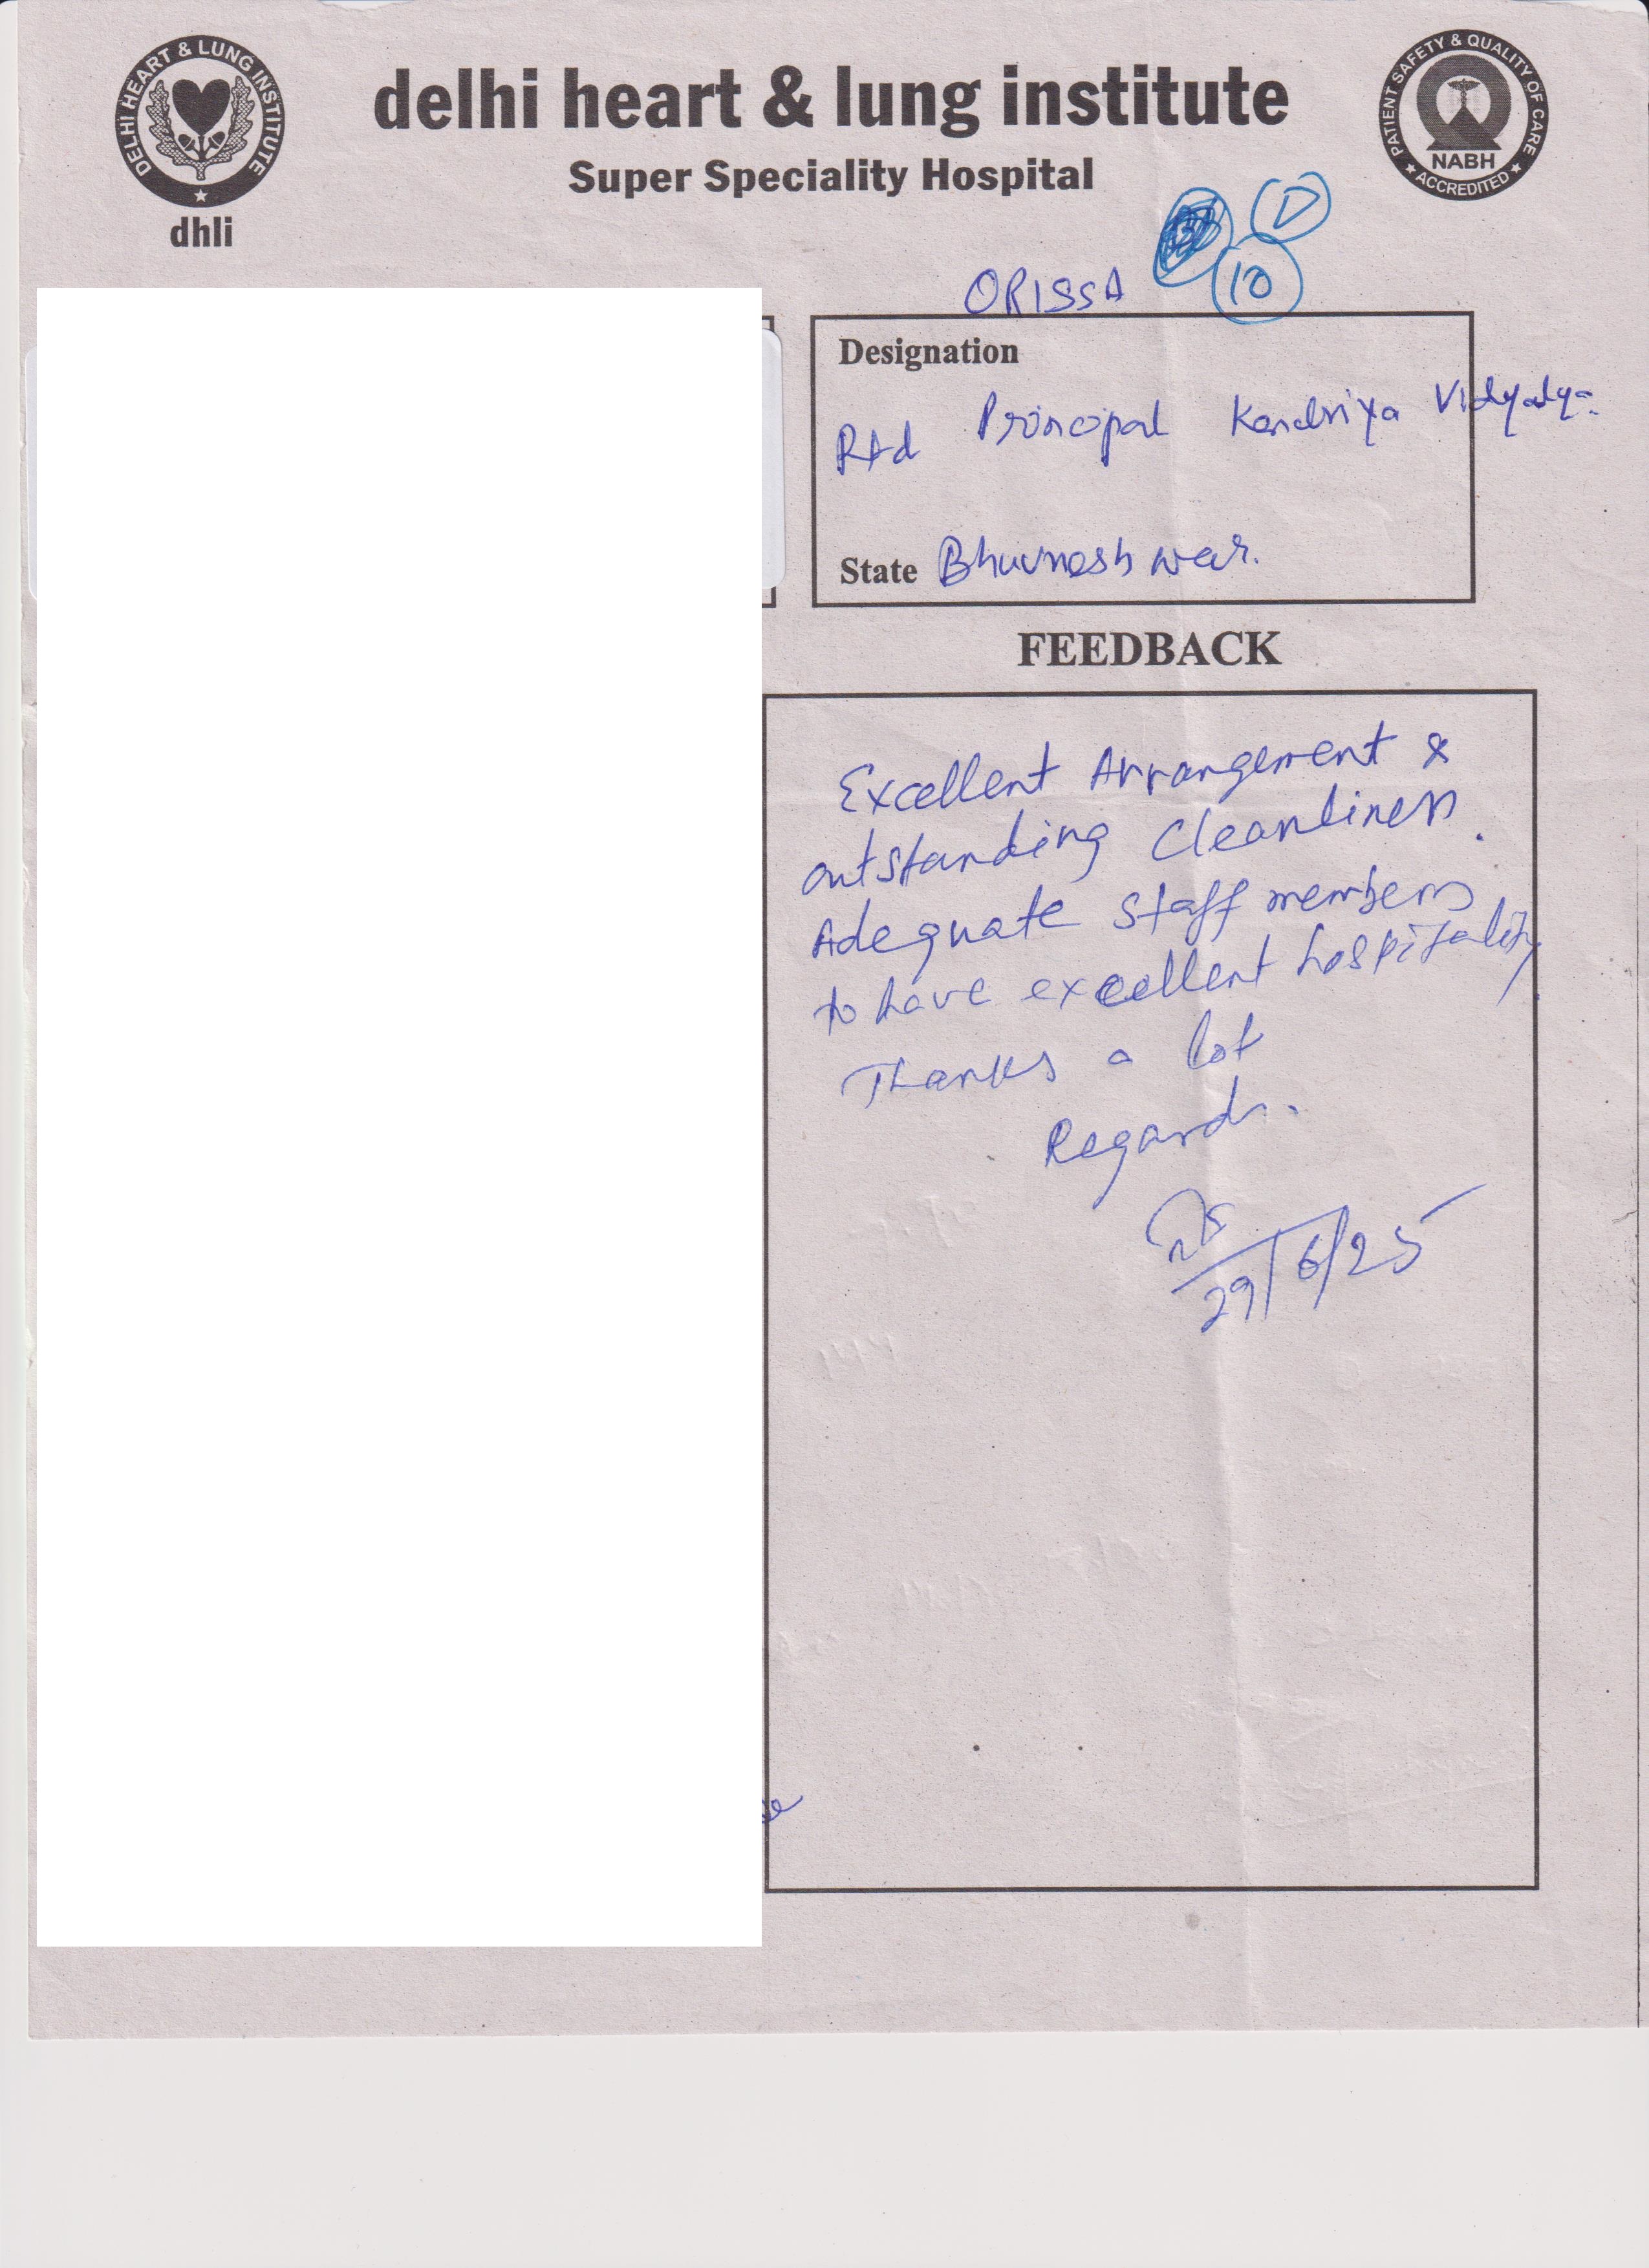 DELHI HEART & LUNG INSTITUTE
dhli
delhi heart & lung institute
Super Speciality Hospital
PATIENT SAFETY & QUALITY OF CARE
NABH
ACCREDITED
D
10
ORISSA
Designation
Rtd Principal Kendriya Vidyalya.
State Bhuvneshwar.
FEEDBACK
Excellent Arrangement &
outstanding Cleanliness.
Adequate staff members
to have excellent hospitality
Thanks a lot
Regards.
29/6/25